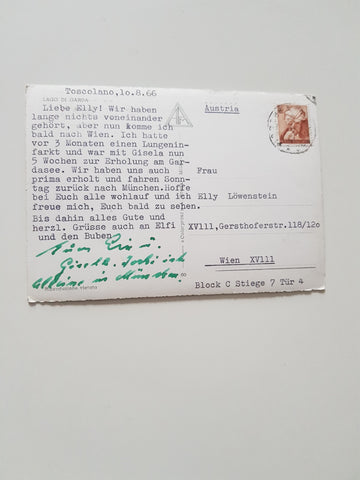 Toscolano,lo.8.66
LAGO DI GARDA
Liebe Elly! Wir haben
lange nichts voneinander
gehört, aber nun komme ich
bald nach Wien. Ich hatte
vor 3 Monaten einen Lungenin-
farkt und war mit Gisela nun
5 Wochen zur Erholung am Gar-
dasee. Wir haben uns auch
prima erholt und fahren Sonn-
tag zurück nach München.Hoffe
bei Euch alle wohlauf und ich
freue mich, Euch bald zu sehen.
Bis dahin alles Gute und
herzl. Grüsse auch an Elfi
und den Buben
Gisela. Jochi ist
alleine in München.
Austria
Frau
Elly Löwenstein
XVlll,Gersthoferstr.118/12o
Wien XVlll
Block C Stiege 7 Tür 4